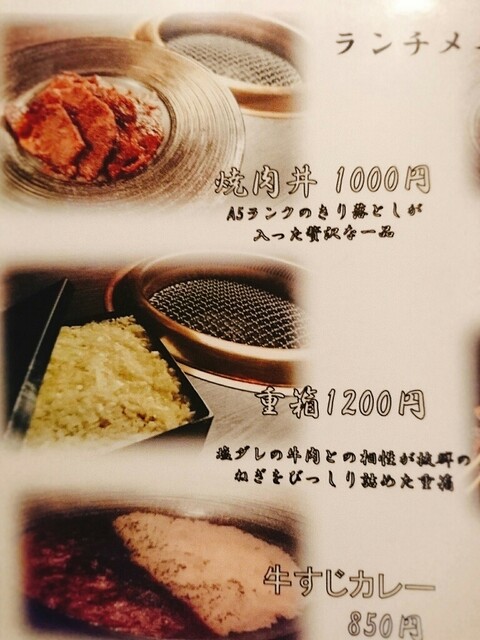 ランチメ
焼肉丼 1000円
A5ランクのきり落としが
入った贅沢な一品
重箱1200円
塩ダレの牛肉との相性が抜群の
ねぎをびっしり詰めた重箱
牛すじカレー
850円